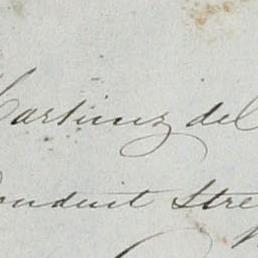 Martinez del
Conduit Stre